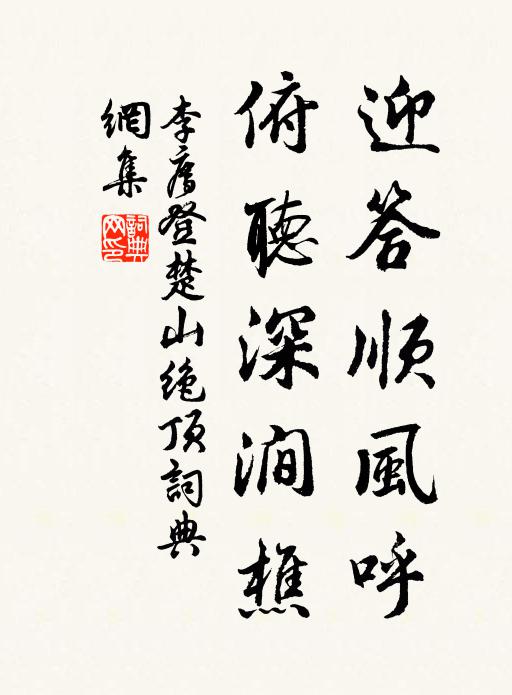 迎答順風呼
俯聽深澗樵
李廌登楚山絶頂詞典
網集
詞典
网印